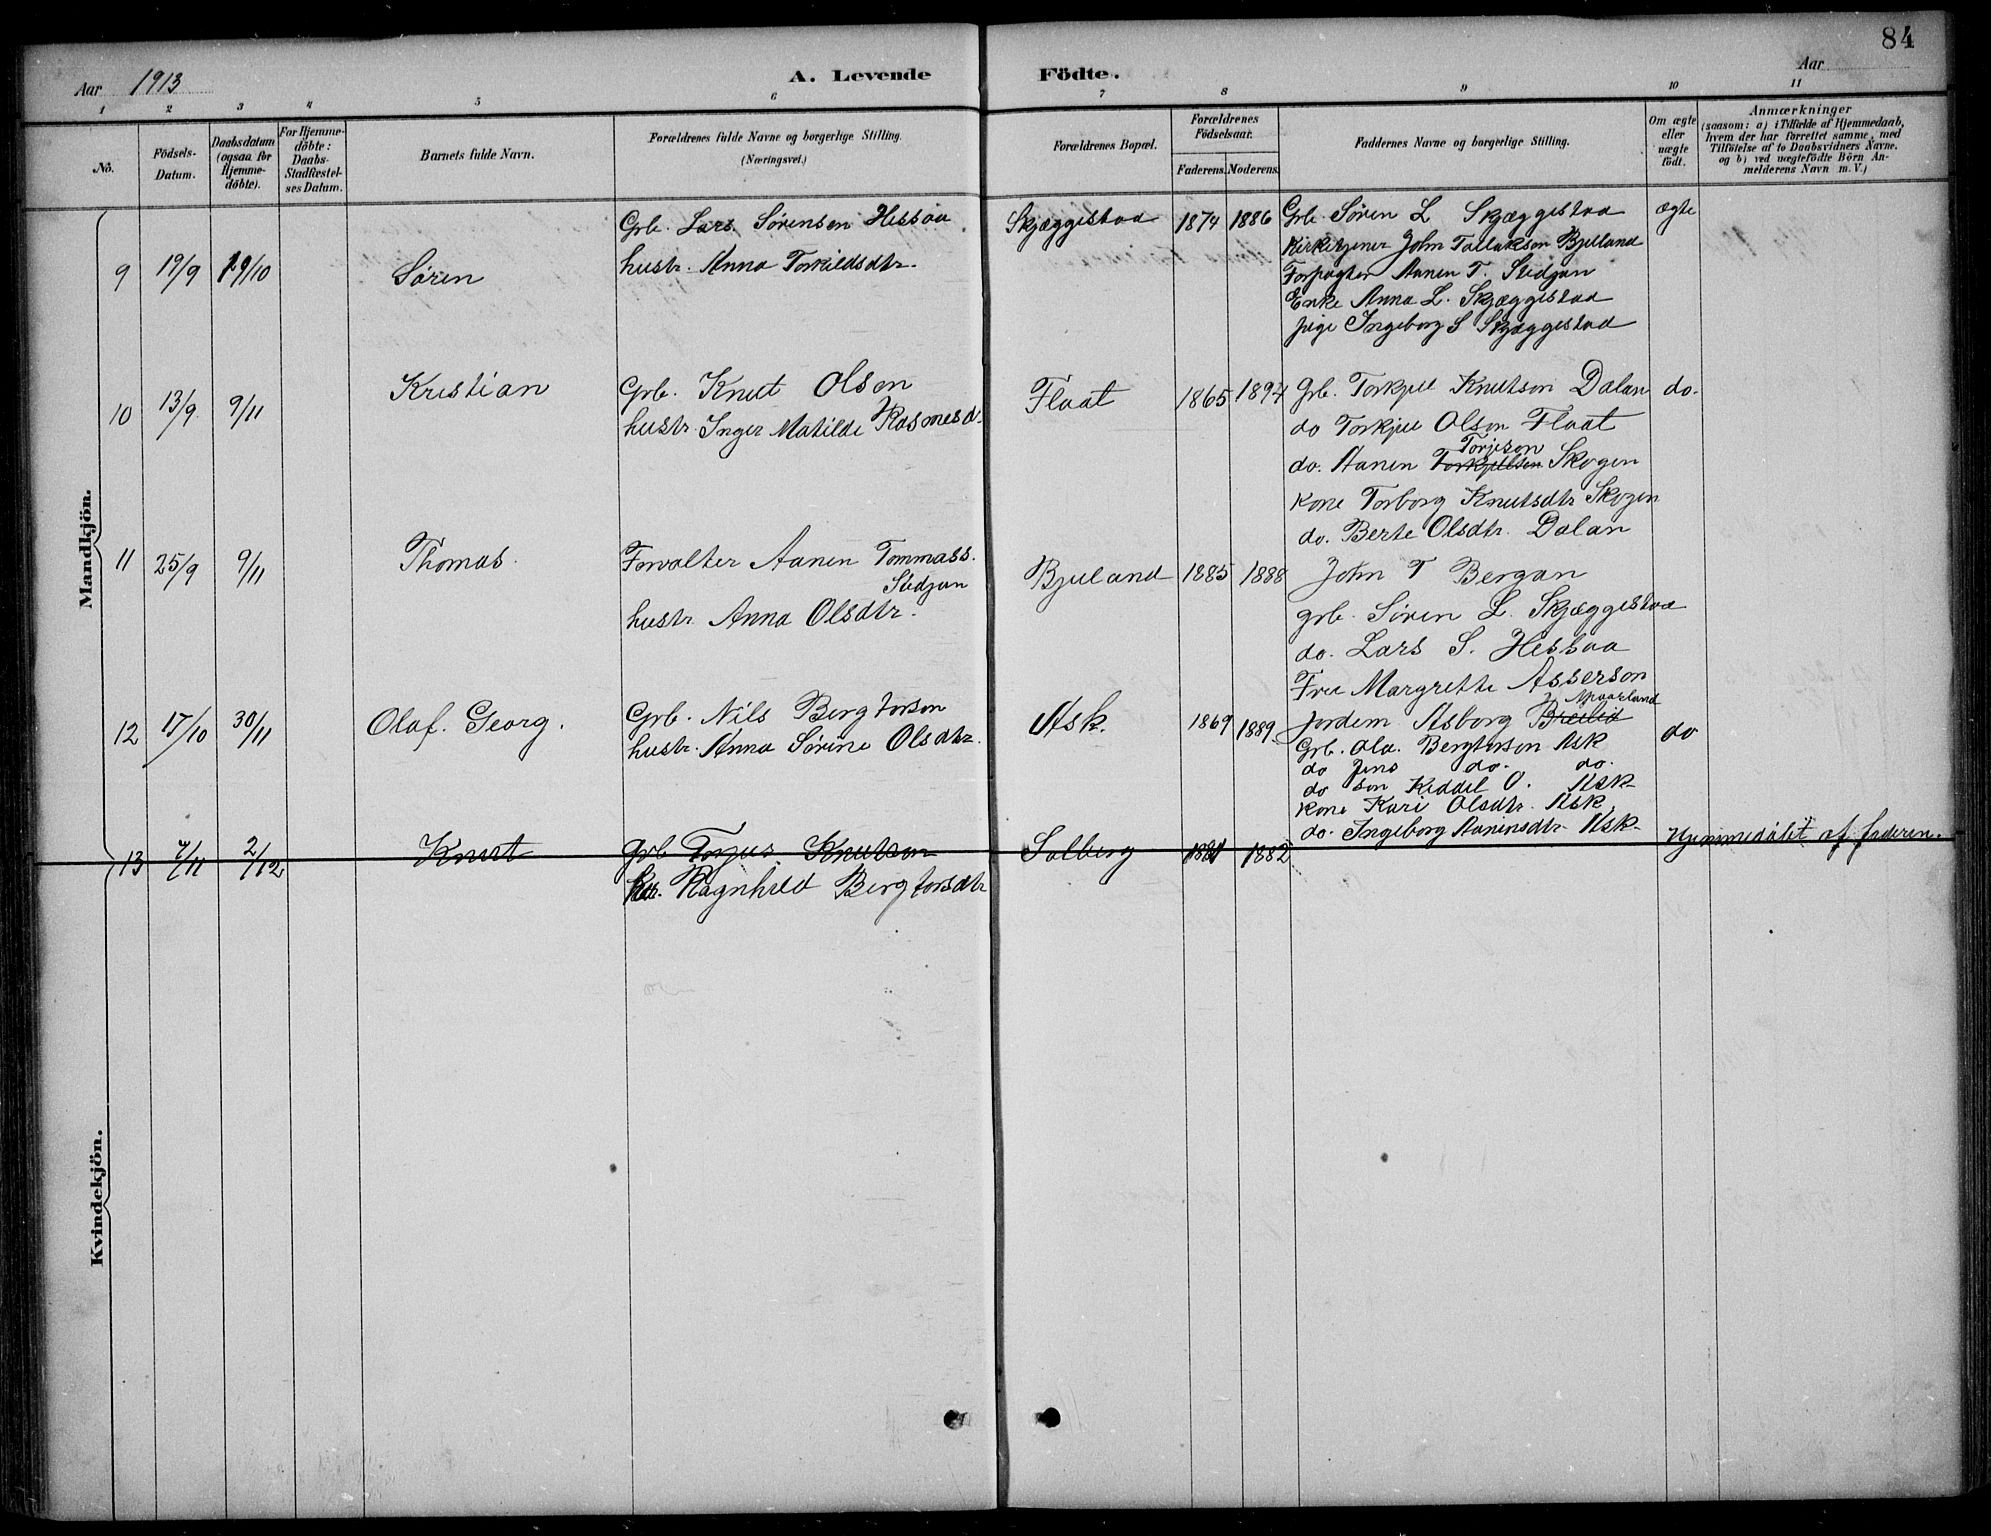 84
Aar 1913
A. Levende Födte.
Aar
1 2 3 4 5 6 7 8 9 10 11
No.
Födsels-Datum.
Daabsdatum (ogsaa for Hjemme-döbte).
For Hjemme-döbte: Daabs-Stadfæstel-ses Datum.
Barnets fulde Navn.
Forældrenes fulde Navne og borgerlige Stilling. (Næringsvei.)
Forældrenes Bopæl.
Forældrenes Födselsaar.
Faderens. Moderens.
Faddernes Navne og borgerlige Stilling.
Om ægte eller uægte födt.
Anmærkninger
(saasom: a) i Tilfælde af Hjemmedaab,
hvem der har forrettet samme, med
Tilföielse af to Daabsvidners Navne.
og b) ved uægtefödte Börn An-
melderens Navn m. V.)
Mandkjön.
9 19/9 19/10 Søren
Grb. Lars Sørensen Hessaa
hustr. Anna Torkildsdtr.
Skjæggestad 1874 1886
Grb. Søren L Skjæggestad
Kirketjener John Tallakson Bjelland
Forpagter Aanen T. Stedjan
Enke Anna L. Skjæggestad
pige Ingeborg S Skjæggestad
ægte
10 13/9 9/11 Kristian
Grb. Knut Olsen
hustr. Inger Matilde Rasmusd.
Flaat 1865 1894
Grb. Torkjel Knutson Dalan
do Torkjel Olson Flaat
Torjeson
do. Aanen Torkjellson Skogen
kone Torborg Knutsdtr Skogen
do. Berte Olsdtr. Dalan
do.
11 25/9 9/11 Thomas.
Forvalter Aanen Tommass.
Stedjan
hustr. Anna Olsdtr.
Bjelland 1885 1888
John T Bergan
grb. Søren L. Skjæggestad
do. Lars S. Hessaa
Fru Margrethe Asserson
12 17/10 30/11 Olaf. Georg.
Grb. Nils Bergtorson
hustr. Anna Sørine Olsdtr.
Ask. 1869 1889
Jordem Asborg Breilid
Grb. Ola. Bergtorson Ask
do Jens do. do.
do son Keddel O. Ask
kone Kari Olsdtr. Ask.
do. Ingeborg Aanensdtr. Ask
do
13 7/11 2/12 Knut
Grb Torjus Knutson
Ragnhild Bergtorsdtr
Solberg 1881 1882
Hjemmedøbt af faderen.
Kvindekjön.